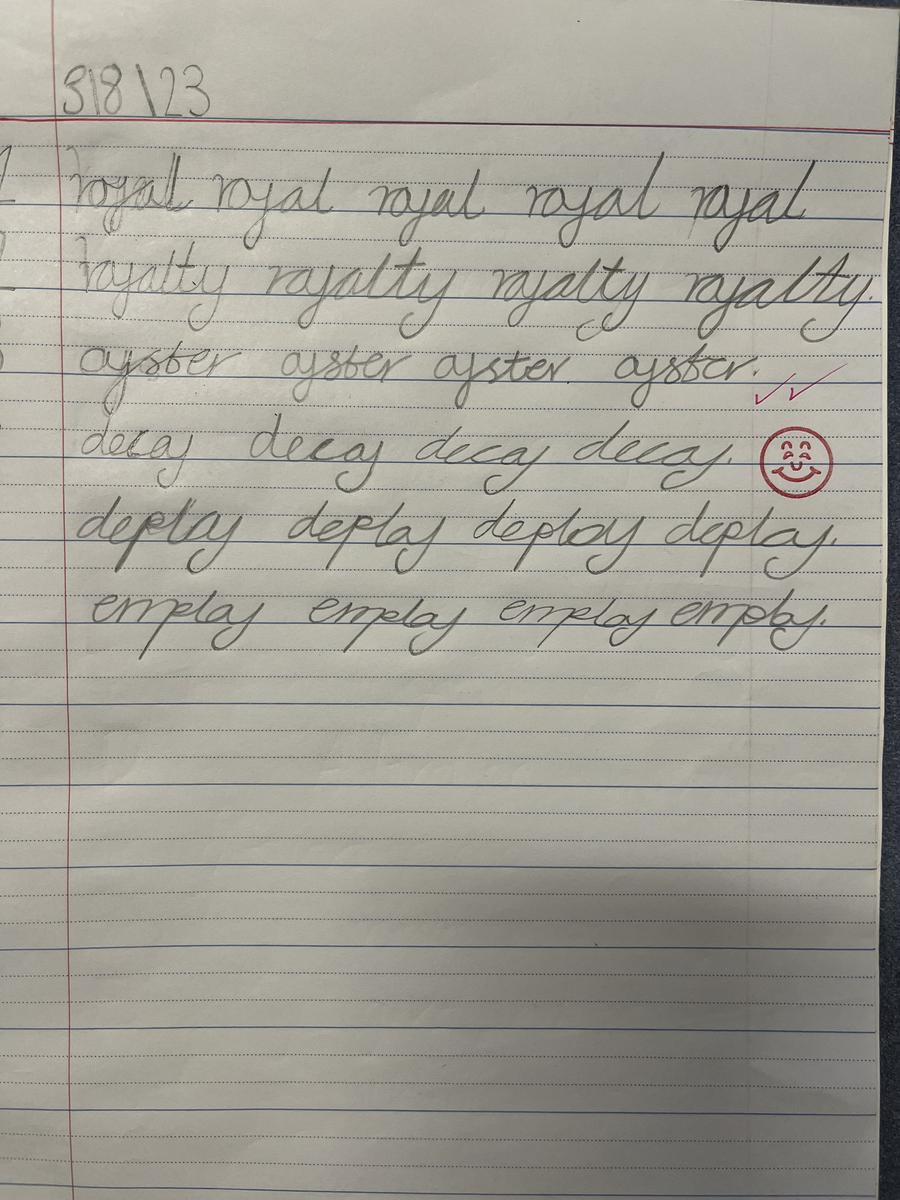 3\8\23
royal royal royal royal royal
royalty royalty royalty royalty.
oyster oyster oyster. oyster.
decay decay decay decay.
deploy deploy deploy deploy.
employ employ employ employ.